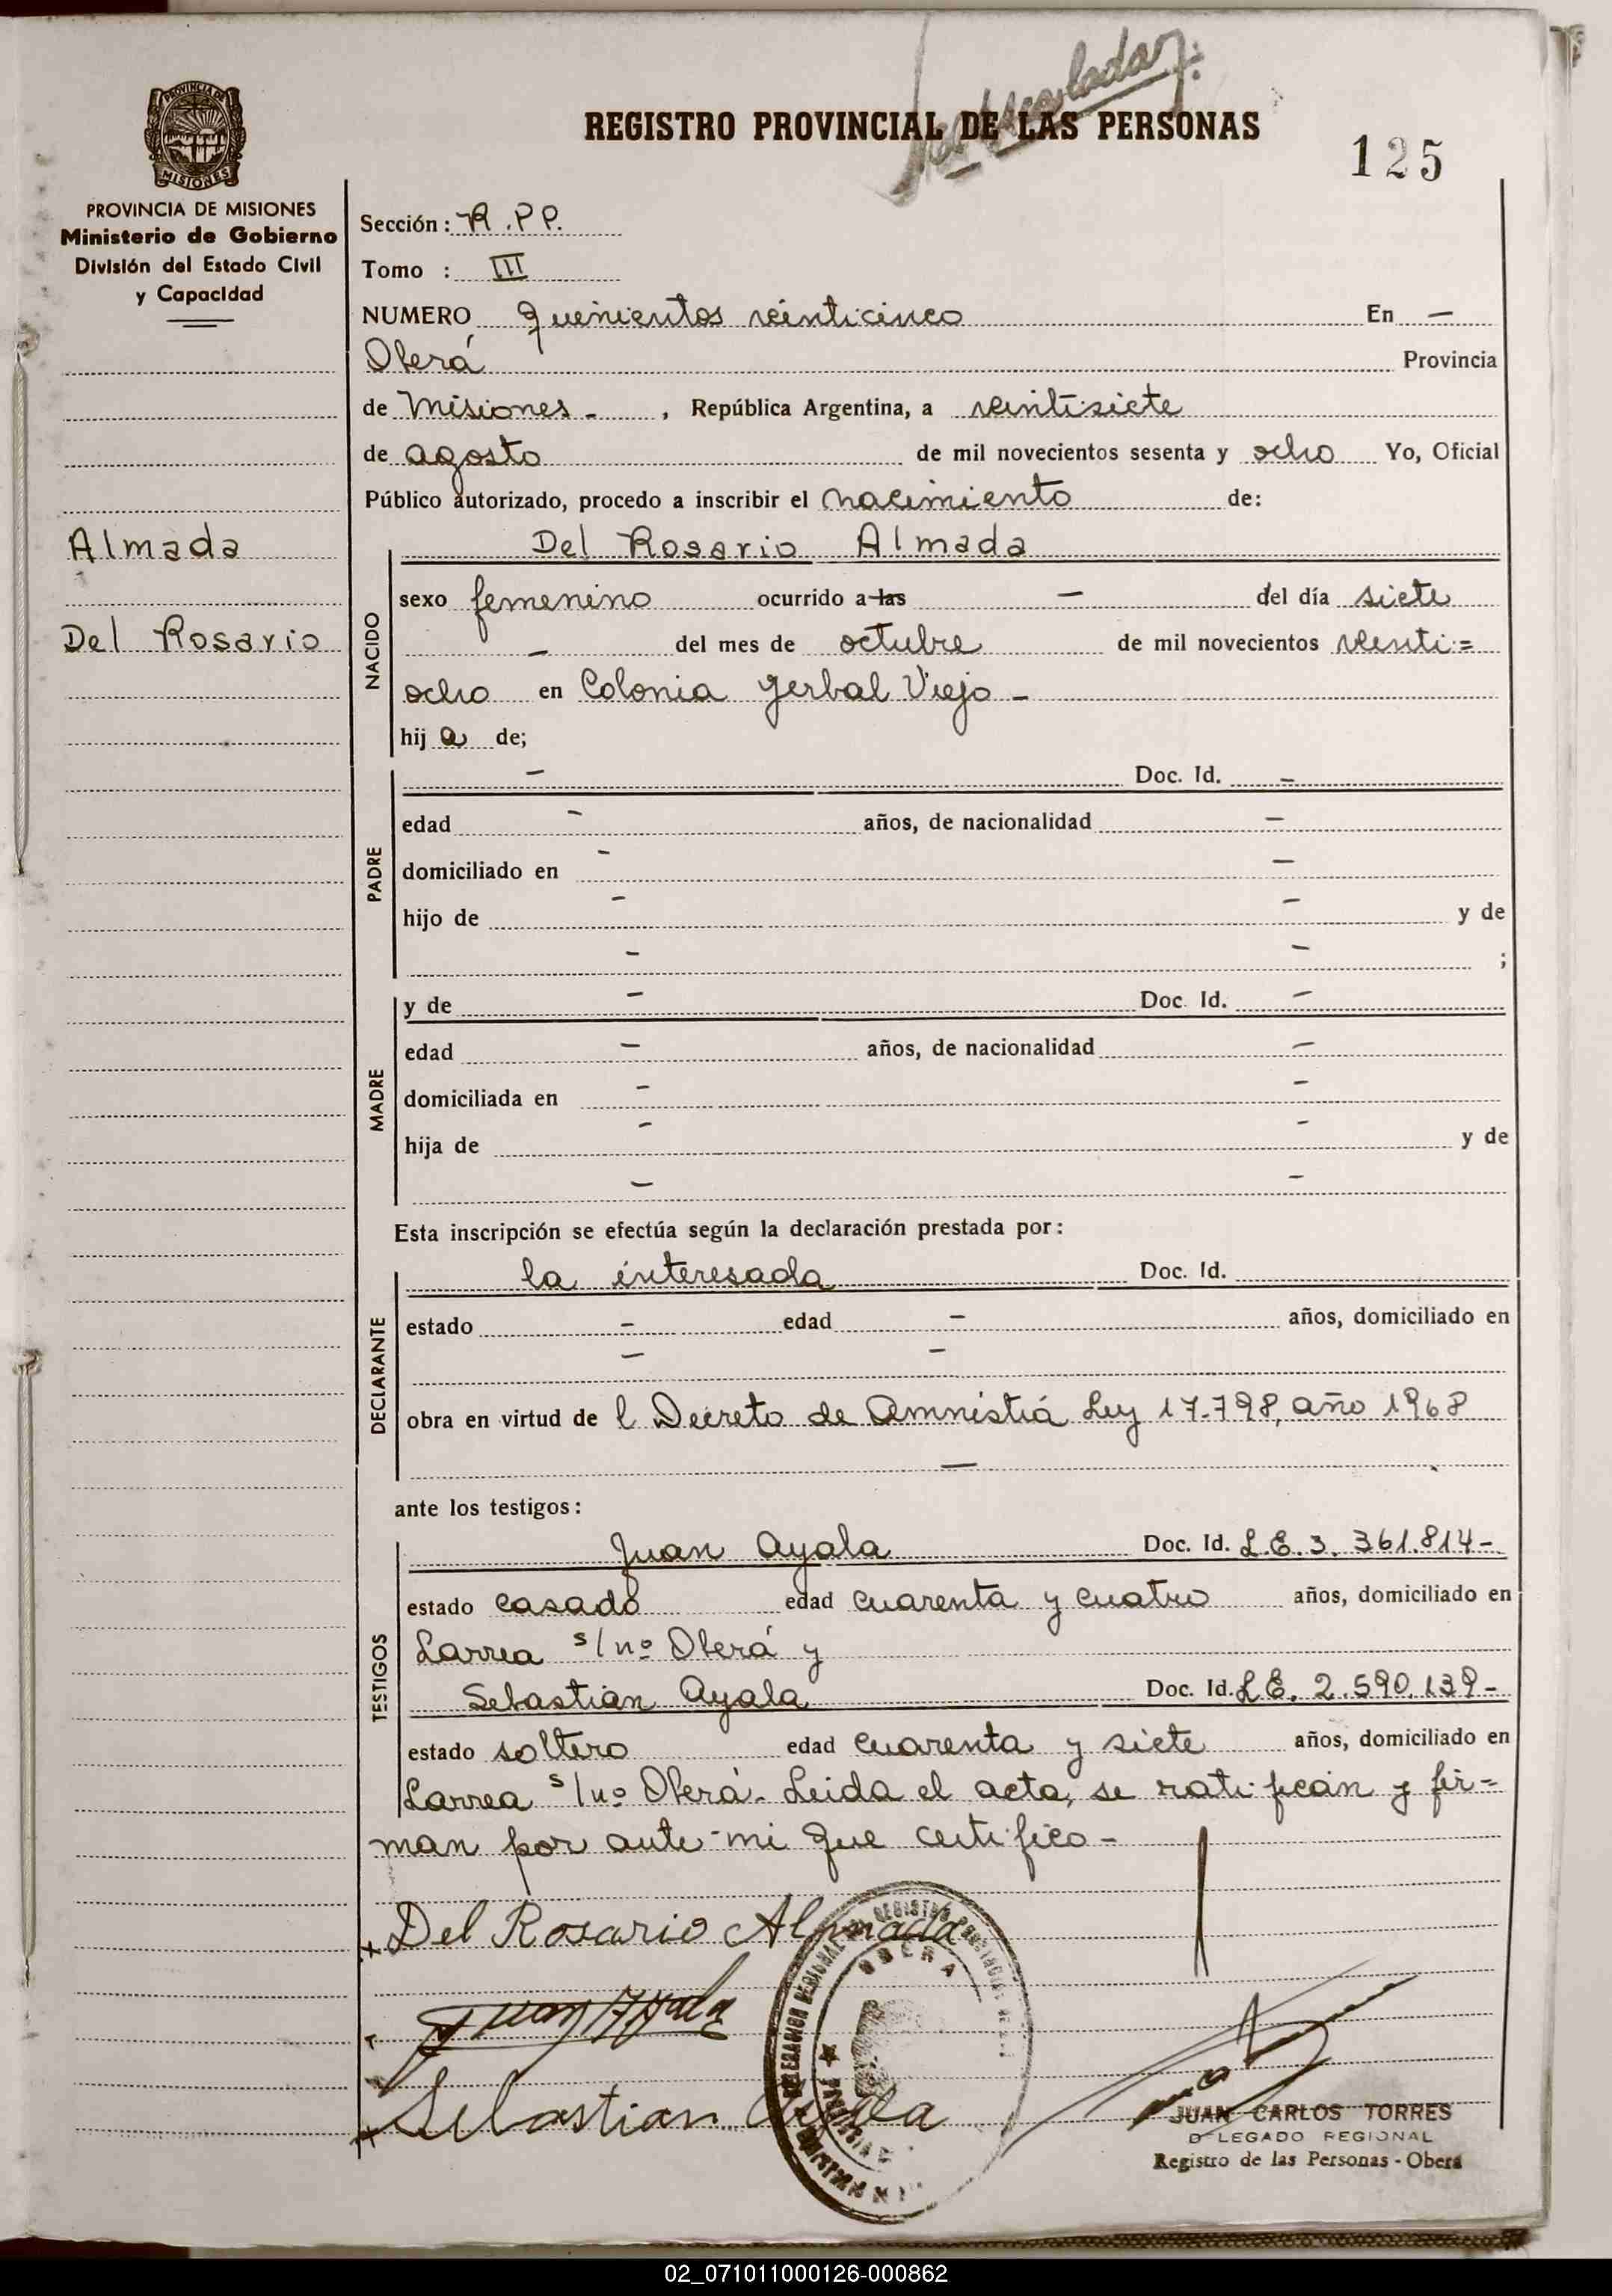 REGISTRO PROVINCIAL DE LAS PERSONAS
125
PROVINCIA DE MISIONES
Ministerio de Gobierno
División del Estado Civil
y Capacidad
Almada
Del Rosario
Sección: R.P.P.
Tomo : III
NUMERO quinientos veinticinco En —
Oberá Provincia
de Misiones - , República Argentina, a veintisiete
de agosto de mil novecientos sesenta y ocho Yo, Oficial
Público autorizado, procedo a inscribir el nacimiento de:
NACIDO
Del Rosario Almada
sexo femenino ocurrido a las — del día siete
— del mes de octubre de mil novecientos veinti=
ocho en Colonia Yerbal Viejo -
hij a de;
PADRE
— Doc. Id. —
edad — años, de nacionalidad —
domiciliado en — —
hijo de — — y de
— — ;
MADRE
y de — Doc. Id. —
edad — años, de nacionalidad —
domiciliada en — —
hija de — — y de
— —
Esta inscripción se efectúa según la declaración prestada por:
DECLARANTE
la interesada Doc. Id.
estado — edad — años, domiciliado en
— —
obra en virtud de l Decreto de Amnistiá Ley 17.798, año 1968
—
ante los testigos:
TESTIGOS
Juan Ayala Doc. Id. L.E. 3. 361.814-
estado casado edad cuarenta y cuatro años, domiciliado en
Larrea s/nº Oberá y
Sebastián Ayala Doc. Id. L.E. 2.590.139-
estado soltero edad cuarenta y siete años, domiciliado en
Larrea s/nº Oberá. Leida el acta, se ratifican y fir=
man por ante mi que certifico-
Del Rosario Almada
Juan Ayala
Sebastian Ayala
OBERA
JUAN CARLOS TORRES
D LEGADO REGIONAL
Registro de las Personas - Oberá
02_071011000126-000862